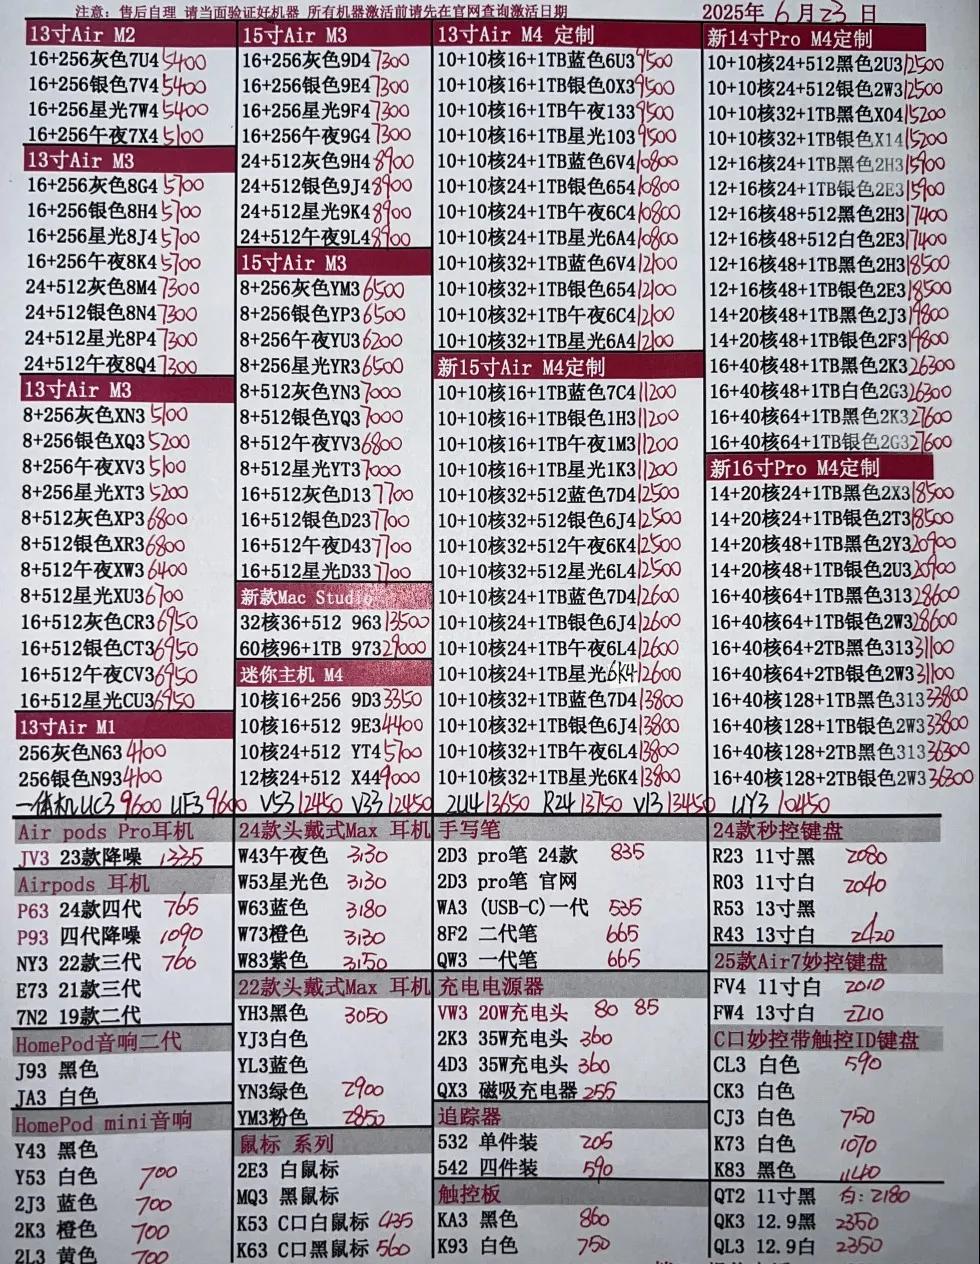 注意：售后自理 请当面验证好机器 所有机器激活前请先在官网查询激活日期
2025年6月23日
13寸Air M2
16+256灰色7U4 5400
16+256银色7V4 5400
16+256星光7W4 5400
16+256午夜7X4 5100
13寸Air M3
16+256灰色8G4 5700
16+256银色8H4 5700
16+256星光8J4 5700
16+256午夜8K4 5700
24+512灰色8M4 7300
24+512银色8N4 7300
24+512星光8P4 7300
24+512午夜8Q4 7300
13寸Air M3
8+256灰色XN3 5100
8+256银色XQ3 5200
8+256午夜XV3 5100
8+256星光XT3 5200
8+512灰色XP3 6800
8+512银色XR3 6800
8+512午夜XW3 6400
8+512星光XU3 6700
16+512灰色CR3 6950
16+512银色CT3 6950
16+512午夜CV3 6950
16+512星光CU3 6950
13寸Air M1
256灰色N63 4100
256银色N93 4100
15寸Air M3
16+256灰色9D4 7300
16+256银色9E4 7300
16+256星光9F4 7300
16+256午夜9G4 7300
24+512灰色9H4 8900
24+512银色9J4 8900
24+512星光9K4 8900
24+512午夜9L4 8900
15寸Air M3
8+256灰色YM3 6500
8+256银色YP3 6500
8+256午夜YU3 6200
8+256星光YR3 6500
8+512灰色YN3 7000
8+512银色YQ3 7000
8+512午夜YV3 6800
8+512星光YT3 7000
16+512灰色D13 7700
16+512银色D23 7700
16+512午夜D43 7700
16+512星光D33 7700
新款Mac Studio
32核36+512 963 13500
60核96+1TB 973 27000
迷你主机 M4
10核16+256 9D3 3350
10核16+512 9E3 4400
10核24+512 YT4 5700
12核24+512 X44 9000
13寸Air M4 定制
10+10核16+1TB蓝色6U3 9500
10+10核16+1TB银色0X3 9500
10+10核16+1TB午夜133 9500
10+10核16+1TB星光103 9500
10+10核24+1TB蓝色6V4 10800
10+10核24+1TB银色654 10800
10+10核24+1TB午夜6C4 10800
10+10核24+1TB星光6A4 10800
10+10核32+1TB蓝色6V4 12100
10+10核32+1TB银色654 12100
10+10核32+1TB午夜6C4 12100
10+10核32+1TB星光6A4 12100
新15寸Air M4定制
10+10核16+1TB蓝色7C4 11200
10+10核16+1TB银色1H3 11200
10+10核16+1TB午夜1M3 11200
10+10核16+1TB星光1K3 11200
10+10核32+512蓝色7D4 12500
10+10核32+512银色6J4 12500
10+10核32+512午夜6K4 12500
10+10核32+512星光6L4 12500
10+10核24+1TB蓝色7D4 12600
10+10核24+1TB银色6J4 12600
10+10核24+1TB午夜6L4 12600
10+10核24+1TB星光6K4 12600
10+10核32+1TB蓝色7D4 13800
10+10核32+1TB银色6J4 13800
10+10核32+1TB午夜6L4 13800
10+10核32+1TB星光6K4 13800
新14寸Pro M4定制
10+10核24+512黑色2U3 12500
10+10核24+512银色2W3 12500
10+10核32+1TB黑色X04 15200
10+10核32+1TB银色X14 15200
12+16核24+1TB黑色2H3 15900
12+16核24+1TB银色2E3 15900
12+16核48+512黑色2H3 17400
12+16核48+512白色2E3 17400
12+16核48+1TB黑色2H3 18500
12+16核48+1TB银色2E3 18500
14+20核48+1TB黑色2J3 19800
14+20核48+1TB银色2F3 19800
16+40核48+1TB黑色2K3 26300
16+40核48+1TB白色2G3 26300
16+40核64+1TB黑色2K3 27600
16+40核64+1TB银色2G3 27600
新16寸Pro M4定制
14+20核24+1TB黑色2X3 18500
14+20核24+1TB银色2T3 18500
14+20核48+1TB黑色2Y3 20900
14+20核48+1TB银色2U3 20900
16+40核64+1TB黑色313 28600
16+40核64+1TB银色2W3 28600
16+40核64+2TB黑色313 31100
16+40核64+2TB银色2W3 31100
16+40核128+1TB黑色313 33800
16+40核128+1TB银色2W3 33800
16+40核128+2TB黑色313 36300
16+40核128+2TB银色2W3 36300
一体机UC3 9600 UF3 9600 V53 12450 V33 12450 2U4 13650 R24 13750 V13 13450 UY3 10450
Air pods Pro耳机
JV3 23款降噪 1335
Airpods 耳机
P63 24款四代 765
P93 四代降噪 1090
NY3 22款三代 760
E73 21款三代
7N2 19款二代
HomePod音响二代
J93 黑色
JA3 白色
HomePod mini音响
Y43 黑色
Y53 白色 700
2J3 蓝色 700
2K3 橙色 700
2L3 黄色 700
24款头戴式Max 耳机
W43午夜色 3130
W53星光色 3130
W63蓝色 3180
W73橙色 3130
W83紫色 3150
22款头戴式Max 耳机
YH3黑色 3050
YJ3白色
YL3蓝色
YN3绿色 2900
YM3粉色 2850
鼠标 系列
2E3 白鼠标
MQ3 黑鼠标
K53 C口白鼠标 435
K63 C口黑鼠标 560
手写笔
2D3 pro笔 24款 835
2D3 pro笔 官网
WA3 (USB-C)一代 535
8F2 二代笔 665
QW3 一代笔 665
充电电源器
VW3 20W充电头 80 85
2K3 35W充电头 360
4D3 35W充电头 360
QX3 磁吸充电器 255
追踪器
532 单件装 205
542 四件装 590
触控板
KA3 黑色 860
K93 白色 750
24款秒控键盘
R23 11寸黑 2080
R03 11寸白 2040
R53 13寸黑
R43 13寸白 2420
25款Air7妙控键盘
FV4 11寸白 2010
FW4 13寸白 2210
C口妙控带触控ID键盘
CL3 白色 590
CK3 白色
CJ3 白色 750
K73 白色 1070
K83 黑色 1140
QT2 11寸黑 白：2180
QK3 12.9黑 2350
QL3 12.9白 2350